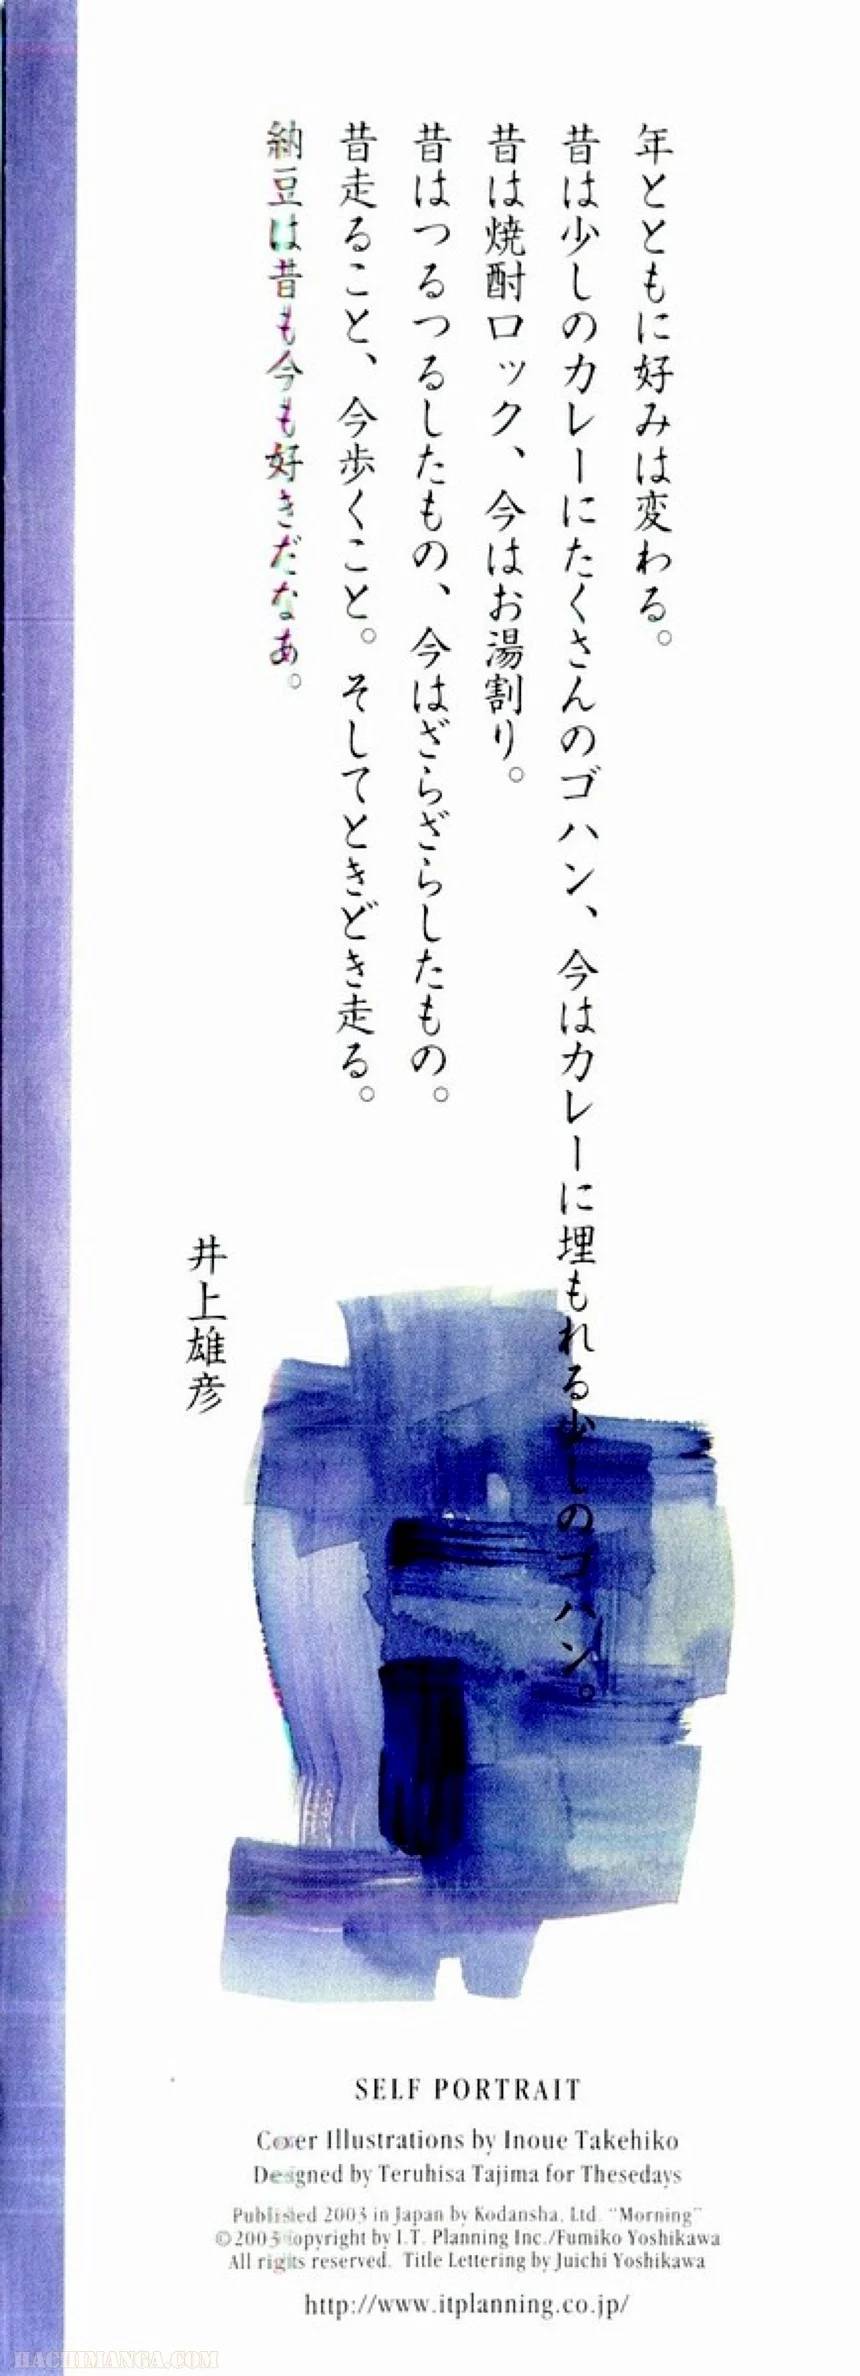 年とともに好みは変わる。
昔は少しのカレーにたくさんのゴハン、今はカレーに埋もれる少しのゴハン。
昔は焼酎ロック、今はお湯割り。
昔はつるつるしたもの、今はざらざらしたもの。
昔走ること、今歩くこと。そしてときどき走る。
納豆は昔も今も好きだなあ。
井上雄彦
SELF PORTRAIT
Cover Illustrations by Inoue Takehiko
Designed by Teruhisa Tajima for Thesedays
Published 2003 in Japan by Kodansha, Ltd. "Morning"
©2003 Copyright by I.T. Planning Inc./Fumiko Yoshikawa
All rights reserved. Title Lettering by Juichi Yoshikawa
http://www.itplanning.co.jp/
HACHIMANGA.COM